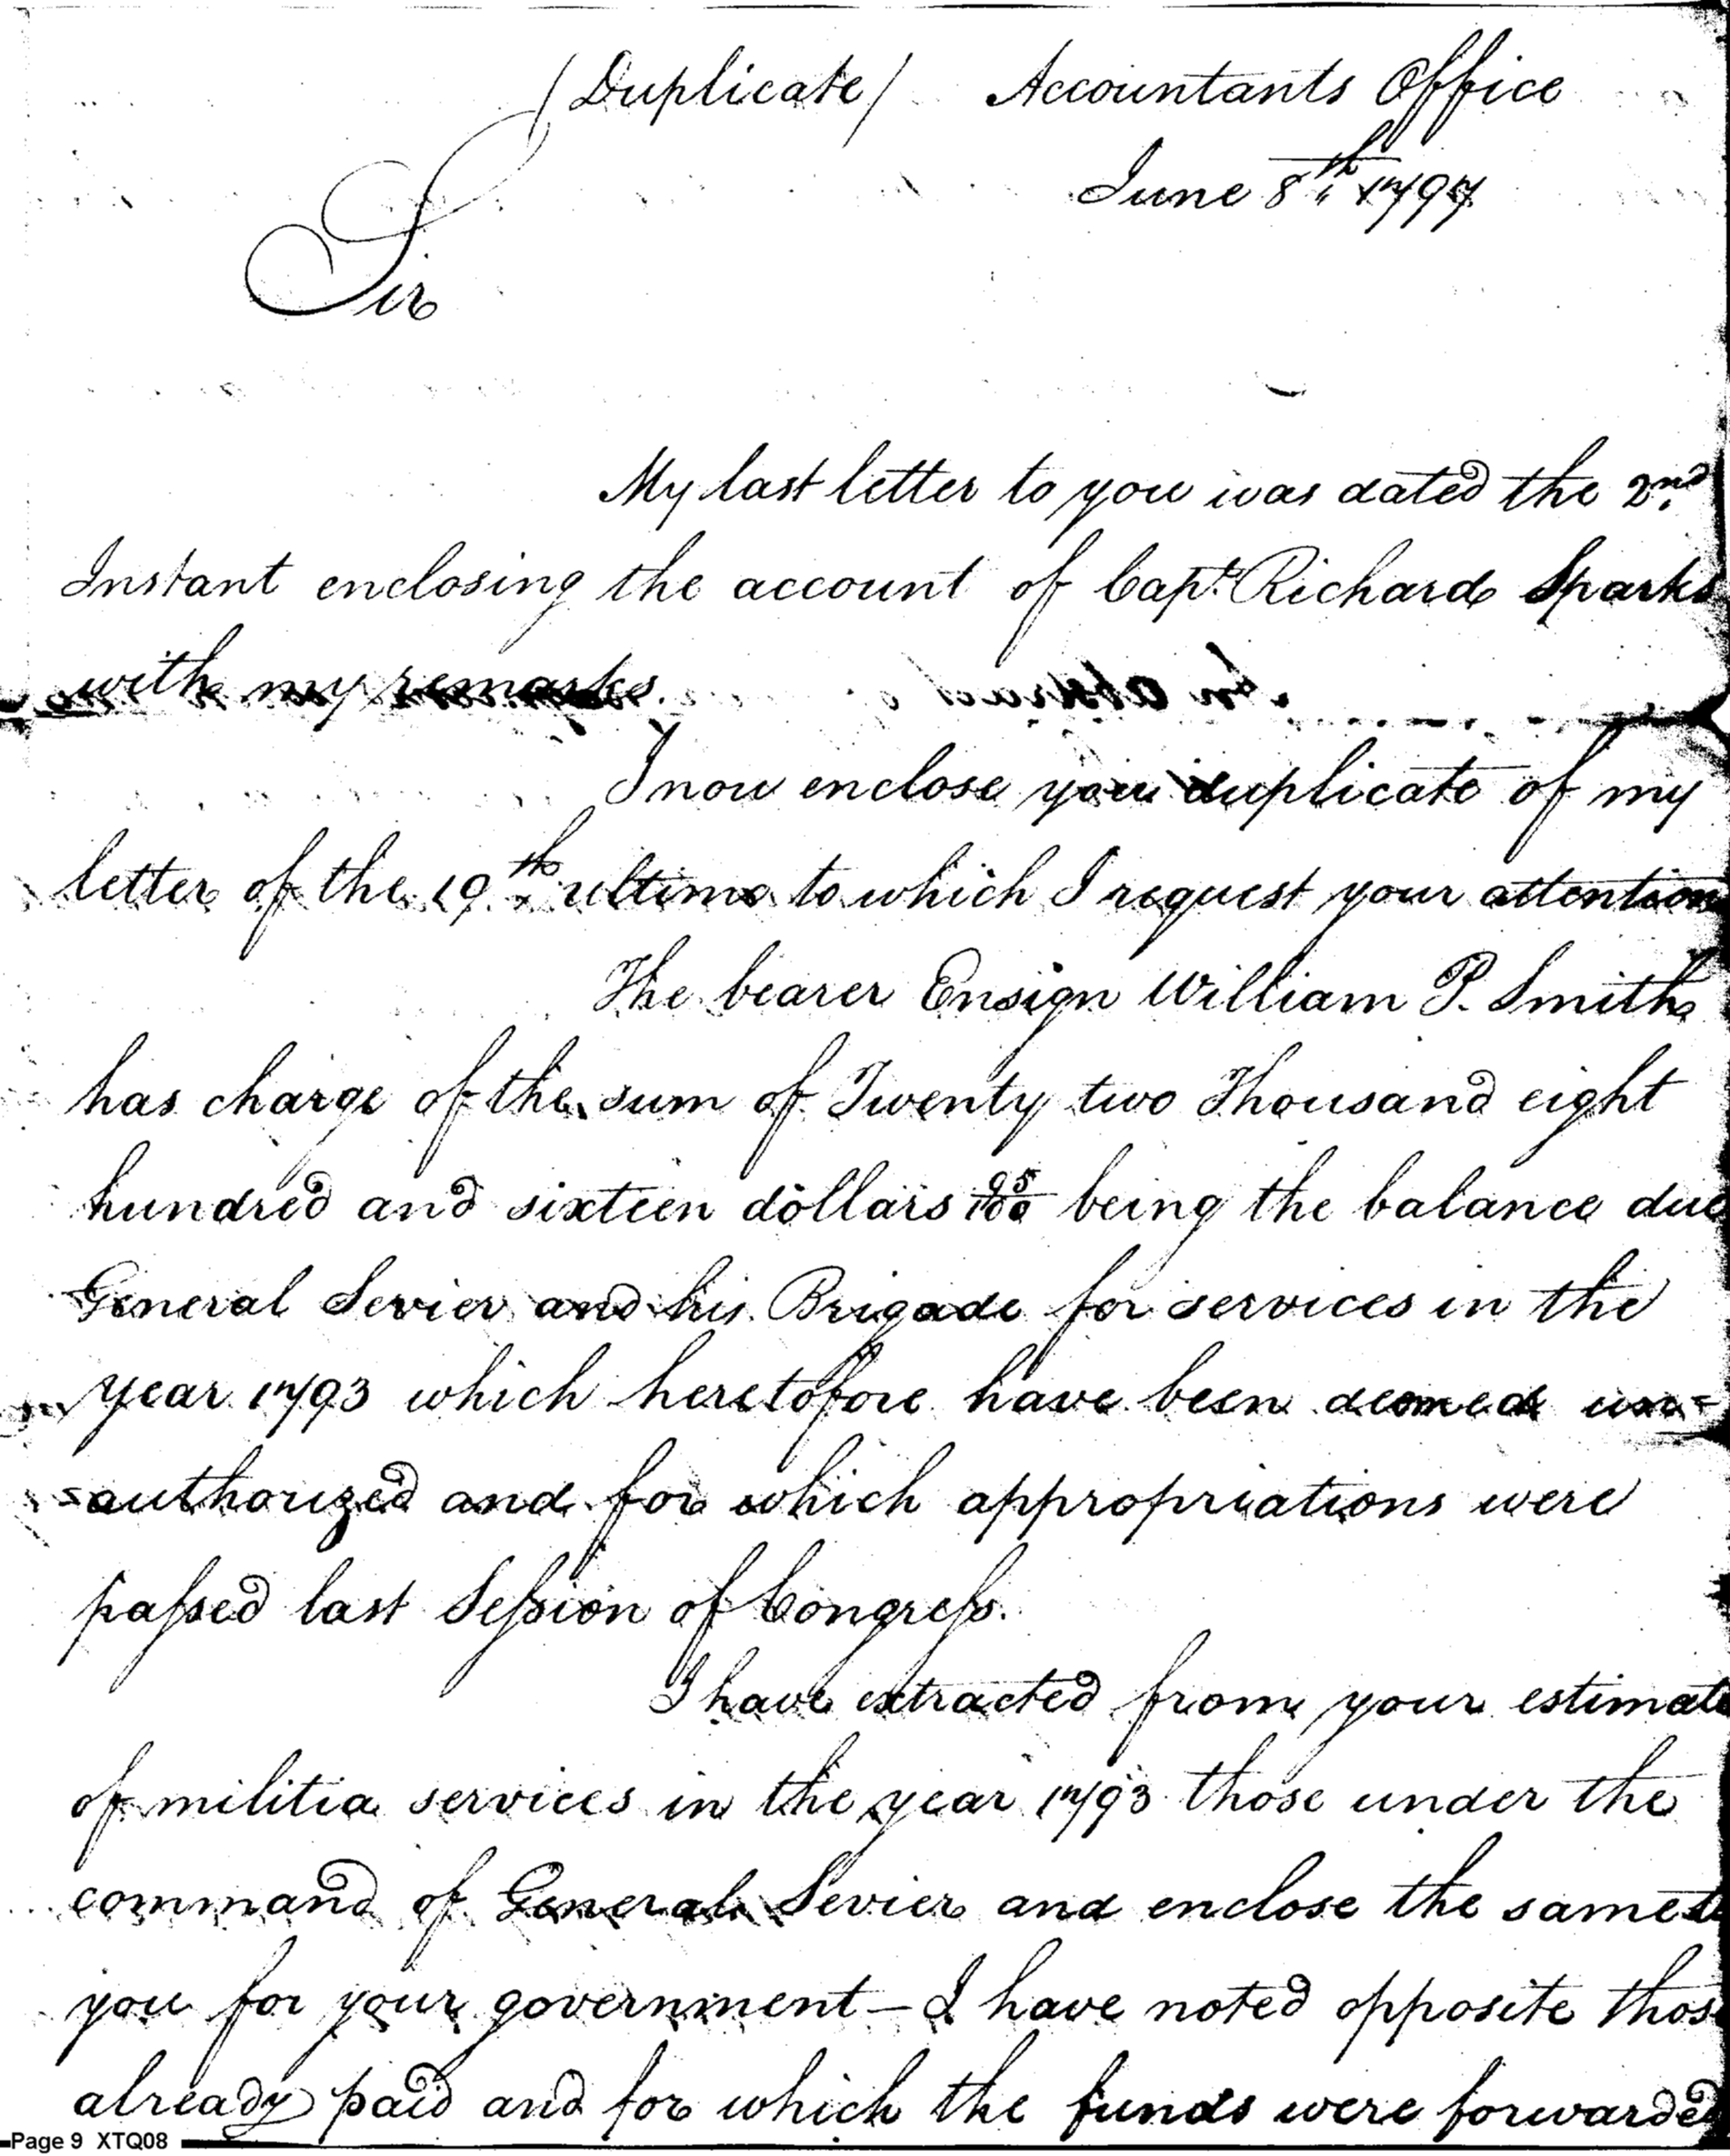 (Duplicate) Accountants Office
June 8th 1797
Sir
My last letter to you was dated the 2nd
Instant enclosing the account of Capt. Richard Sparks
with my remarks.
I now enclose you duplicate of my
letter of the 19th ultimo to which I request your attention
The bearer Ensign William P. Smith
has charge of the sum of Twenty two Thousand eight
hundred and sixteen dollars 25/100 being the balance due
General Sevier and his Brigade for services in the
year 1793 which heretofore have been deemed un=
=authorized and for which appropriations were
paſsed last Seſsion of Congreſs.
I have extracted from your estimate
of militia services in the year 1793 those under the
command of General Sevier and enclose the same to
you for your government — I have noted opposite those
already paid and for which the funds were forwarded
Page 9 XTQ08